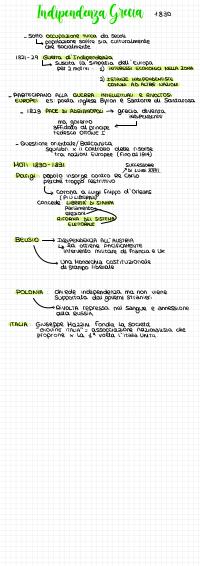 Indipendenza Grecia 1830
- Sono occupazione turca da secoli
popolazione soffre sia culturalmente
che socialmente
1821-29 Guerra di Indipendenza
suscita la simpatia dell'Europa
per 2 motivi 1) interessi economici nella zona
2) istanze indipendentiste
comuni ad altre nazioni
- Partecipano alla guerra intellettuali e patrioti
europei es: poeta inglese Byron e Santorre di Santarosa
- 1829 Pace di Adrianopoli → Grecia diventa
indipendente
ma governo
affidato al principe
tedesco Ottone I
- Questione orientale/Balcanica
squilibri x il controllo delle risorse
tra nazioni europee (fino al 1914)
MOTI 1830-1831
successore
di Luigi XVIII
Parigi popolo insorge contro re Carlo
perché troppo restrittivo
Corona a Luigi Filippo d'Orleans
(più liberale)
concede libertà di stampa
Parlamento
elezioni
riforma del sistema
elettorale
Belgio → Indipendenza all'Austria
la ottiene pacificamente
intervento militare di Francia e UK
Una monarchia costituzionale
di stampo liberale
POLONIA: chiede indipendenza ma non viene
supportata dai governi stranieri
Rivolta repressa nel sangue e annessione
alla Russia
ITALIA: Giuseppe Mazzini fonda la società
"Giovine Italia" = associazione nazionalista che
propone x la 1ª volta l'Italia unita